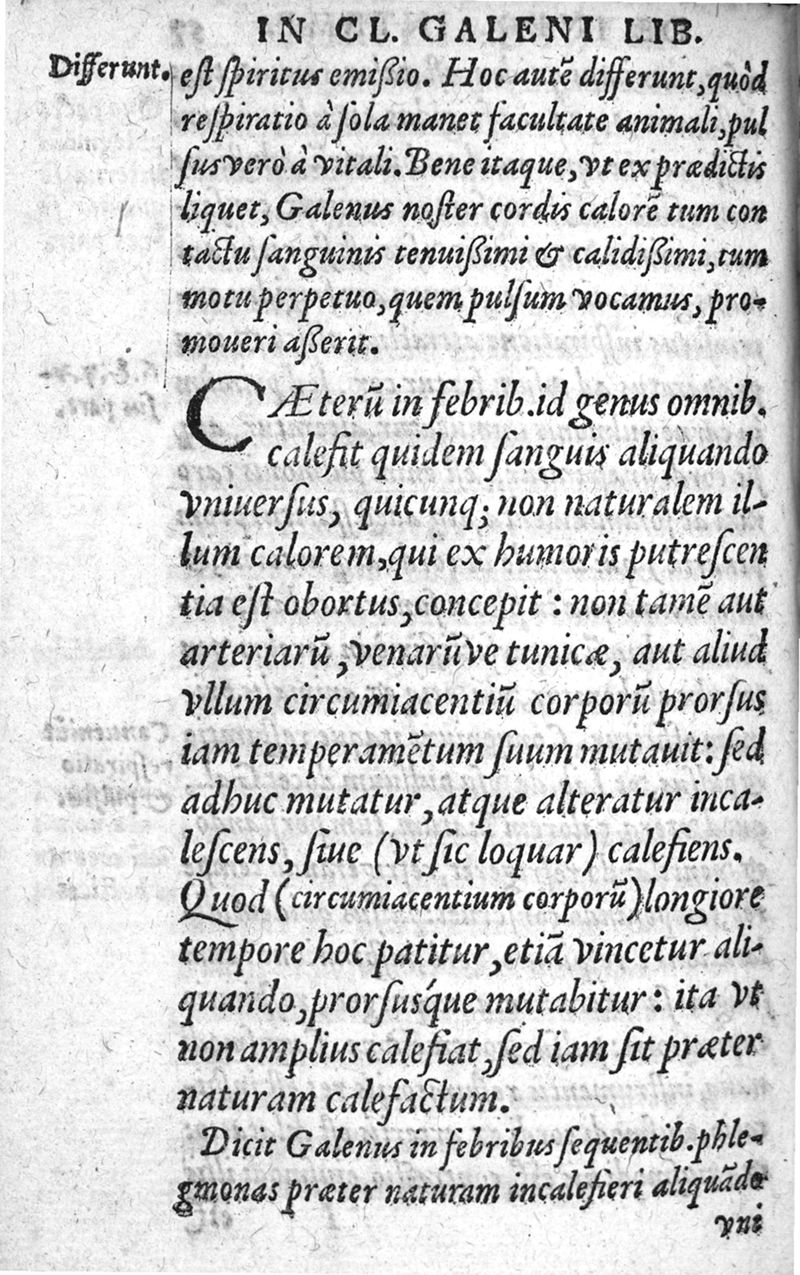 IN CL. GALENI LIB.
Differunt.
est spiritus emißio. Hoc autẽ differunt, quòd
respiratio à sola manet facultate animali, pul
sus verò à vitali. Bene itaque, vt ex prædictis
liquet, Galenus noster cordis calorẽ tum con
tactu sanguinis tenuißimi & calidißimi, tum
motu perpetuo, quem pulsum vocamus, pro-
moueri aßerit.
CÆterũ in febrib. id genus omnib.
calefit quidem sanguis aliquando
vniuersus, quicunq; non naturalem il-
lum calorem, qui ex humoris putrescen
tia est obortus, concepit : non tamẽ aut
arteriarũ, venarũve tunicæ, aut aliud
vllum circumiacentiũ corporũ prorsus
iam temperamẽtum suum mutauit: sed
adhuc mutatur, atque alteratur inca-
lescens, siue (vt sic loquar) calefiens.
Quod (circumiacentium corporũ) longiore
tempore hoc patitur, etiã vincetur ali-
quando, prorsusq́ue mutabitur : ita vt
non amplius calefiat, sed iam sit præter
naturam calefactum.
Dicit Galenus in febribus sequentib. phle-
gmonas præter naturam incalefieri aliquãdo
vni